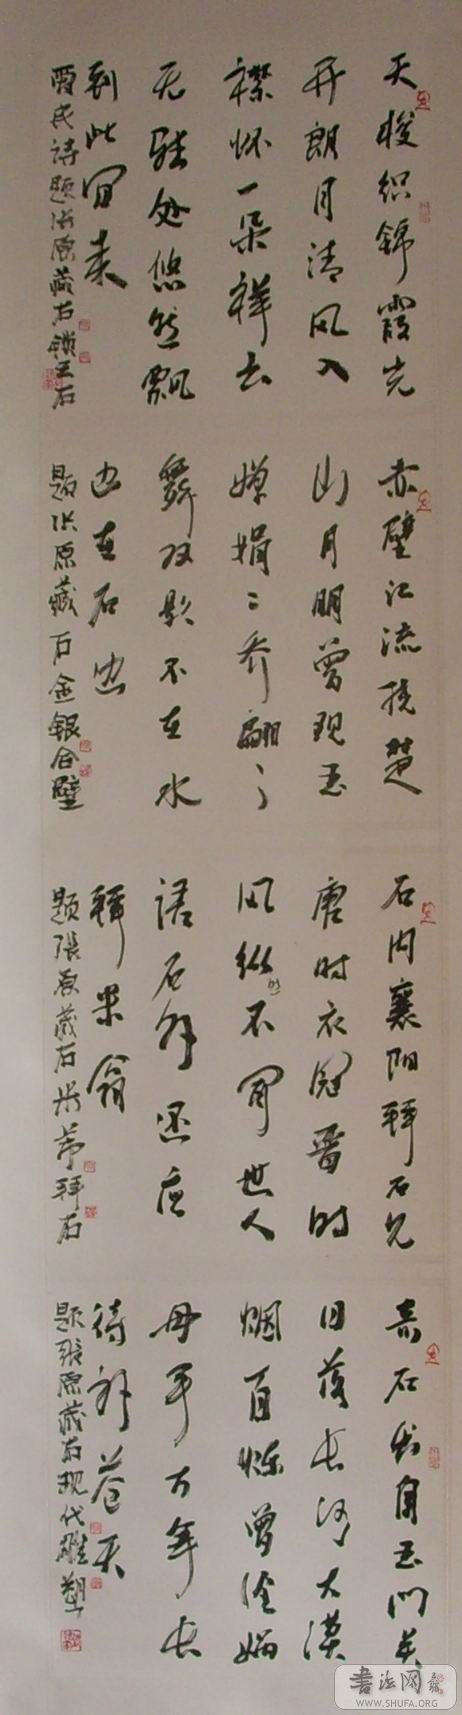 天梭织锦霞光
开朗月清风入
襟怀一朵祥云
无驻处悠然飘
到此间来
贾民诗题洪原藏石锁云石
赤壁江流绕楚
山月明曾现玉
婵娟二乔翩々
舞双影不在水
边在石边
题洪原藏石金银合璧
石丈襄阳拜石兄
唐时衣冠晋时
风纵不闻世人
语石解还应
拜米翁
题张原藏石米芾拜石
奇石出自玉门关
日落长河大漠
烟百炼曾经娲
母手万年长
待补苍天
题张原藏石现代雕塑
书法网
WWW.SHUFA.ORG